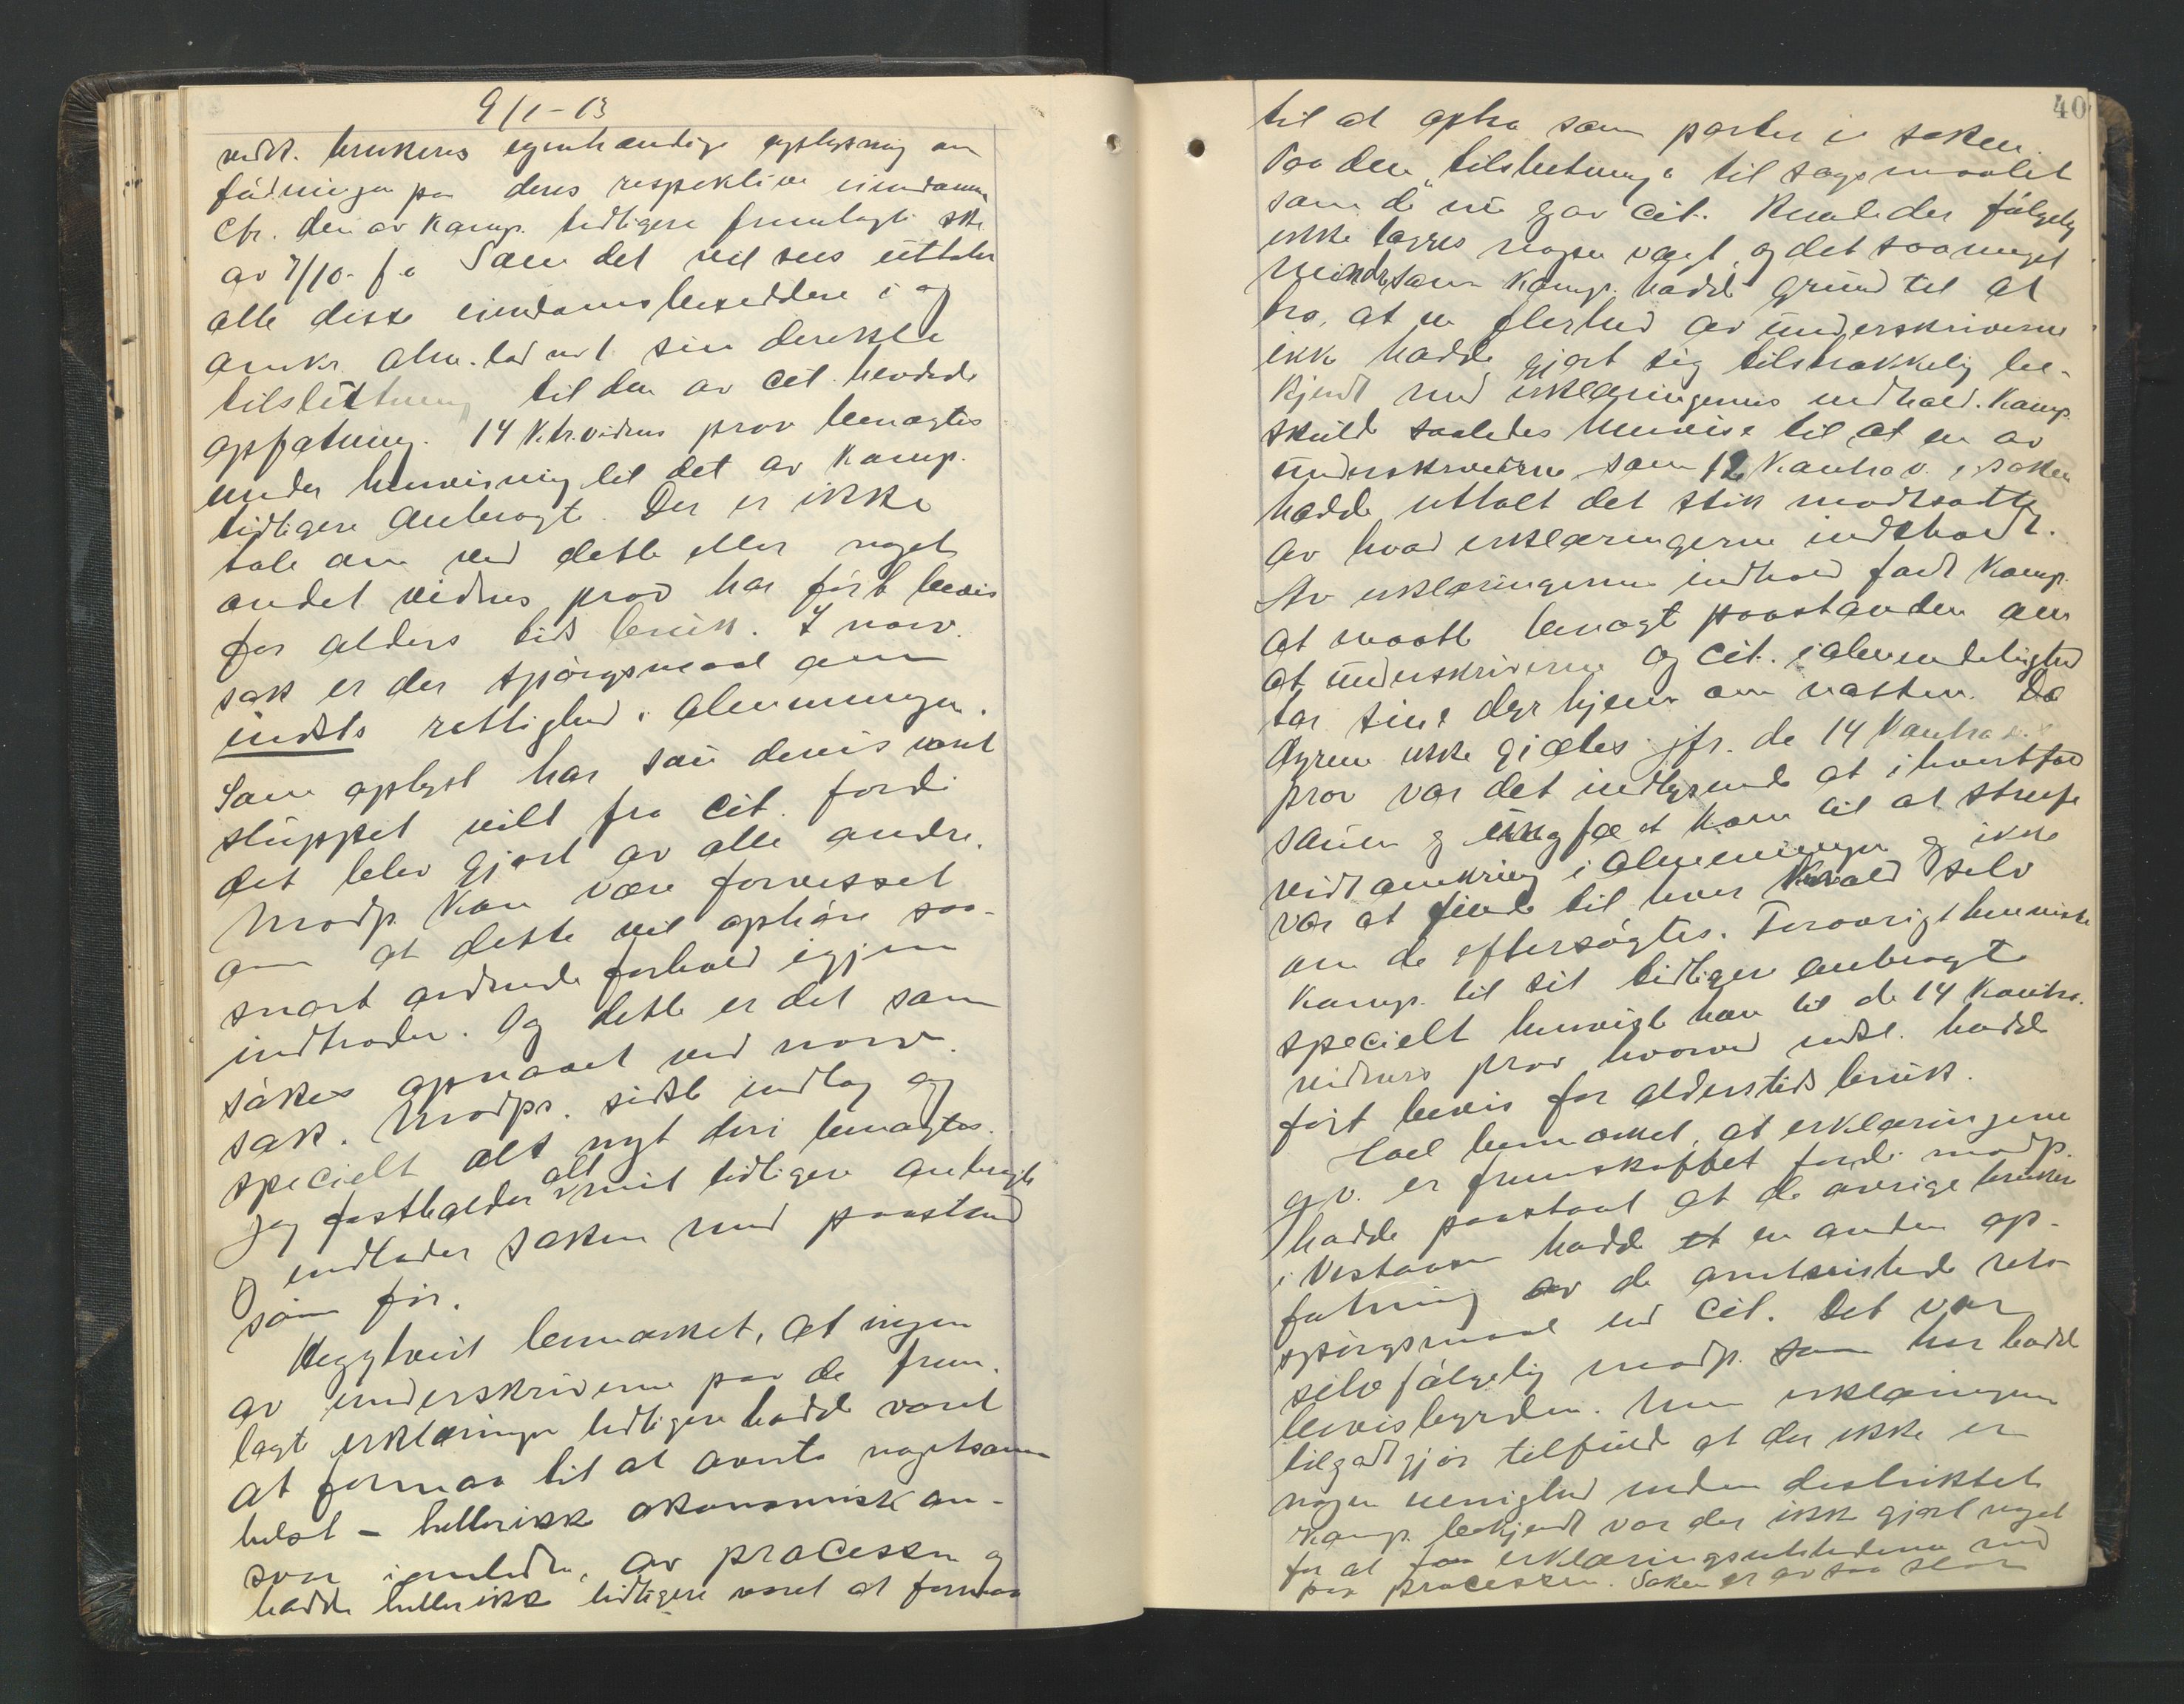 9/1-13
vedk. brukeres egenhændige oplysning om
födningen paa deres respektive eiendomme
cfr. den av Kamp. tidligere fremlagte skr.
av 7/10. f.a. Som det vil sees uttaler
alle disse eiendomsbesiddere i og
omkr. alm. tad
sin direkte
tilslutning til den av cit. hævdede
opfatning. 14 Ktr.vidnes prov benægtes
under henvisning til det av Kamp.
tidligere anbragte. Der er ikke
tale om ved dette eller noget
andet vidnes prov har fört bevis
for alders tids bruk. I nærv.
sak er der spörgsmaal om
indsts rettighed i almenningen.
Som oplyst har sau devis været
sluppet vilt fra cit. fordi
det blev gjort av alle andre.
Modp. kan være forvisset
om at dette vil ophöre saa-
snart ordnede forhold igjen
indtræder. Og dette er det som
sökes opnaaet ved nærv.
sak. Modps. sidste indlæg og
specielt alt nyt deri benægtes.
Jeg fastholder alt mit tidligere anbragte
og indlader saken med paastand
som för.
Heggtveit bemærket, at ingen
av underskriverne paa de frem-
lagte erklæringer tidligere hadde været
at formaa til at avvite nogetsom-
helst – hellerikke økonomisk an-
svar i anledn. av processen og
hadde hellerikke tidligere været at formaa
40
til at optræ som parter i saken.
Paa den "tilslutning" til søgsmaalet
som de nu gav cit. kunde der fölgelig
ikke lægges nogen vægt, og det saameget
mindre som Kamp. hadde grund til at
tro, at en flerhed av underskriverne
ikke hadde gjort sig tilstrækkelig be-
kjendt med erklæringernes indhold. Kamp.
skulde saaledes henvise til at en av
underskriverne som 12 Kontrav. i saken
hadde uttalt det stik modsatte
av hvad erklæringerne indeholdt.
Av erklæringernes indhold fandt Kamp.
at maatte benægte paastanden om
at underskriverne og cit. i almindelighed
tar sine dyr hjem om natten. Da
dyrene ikke gjætes jfr. de 14 Kontrav.
prov var det indlysende at ihvertfald
sauen og ungfæet kom til at streife
vidt omkring i almenningen og ikke
var at finde til hver kvæld selv
om de eftersögtes. Forövrigt henviste
Kamp. til sit tidligere anbragte
specielt henviste han til de 14 Kontra.
vidners prov hvorved indst. hadde
fört bevis for alderstids bruk.
Hoel bemærket, at erklæringerne
er fremskaffet fordi modp.
hadde paastaat at de övrige brukere
i Vestaasen hadde et en anden op-
fatning av de omtvistede rets-
spörgsmaal end cit. Det var
selvfölgelig modp. som her hadde
bevisbyrden. Men erklæringerne
tilgodtgjör tilfulde at der ikke er
nogen uenighed inden distriktet
Kamp. bekjendt var der ikke gjort noget
for at faa erklæringsutstederne med
paa processen. Saken er av saa stor